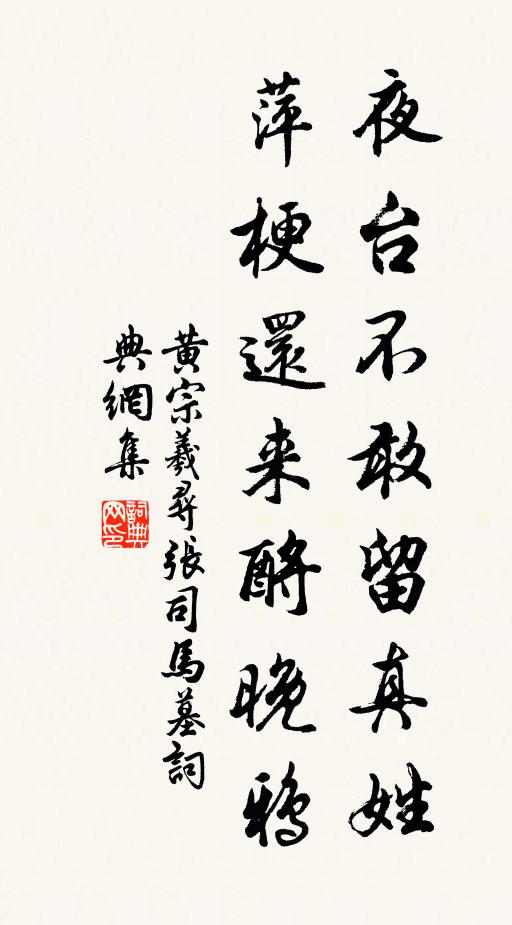 夜台不敢留真姓
萍梗還来酹晚鴉
黄宗羲尋張司馬墓詞
典網集
詞典
网印